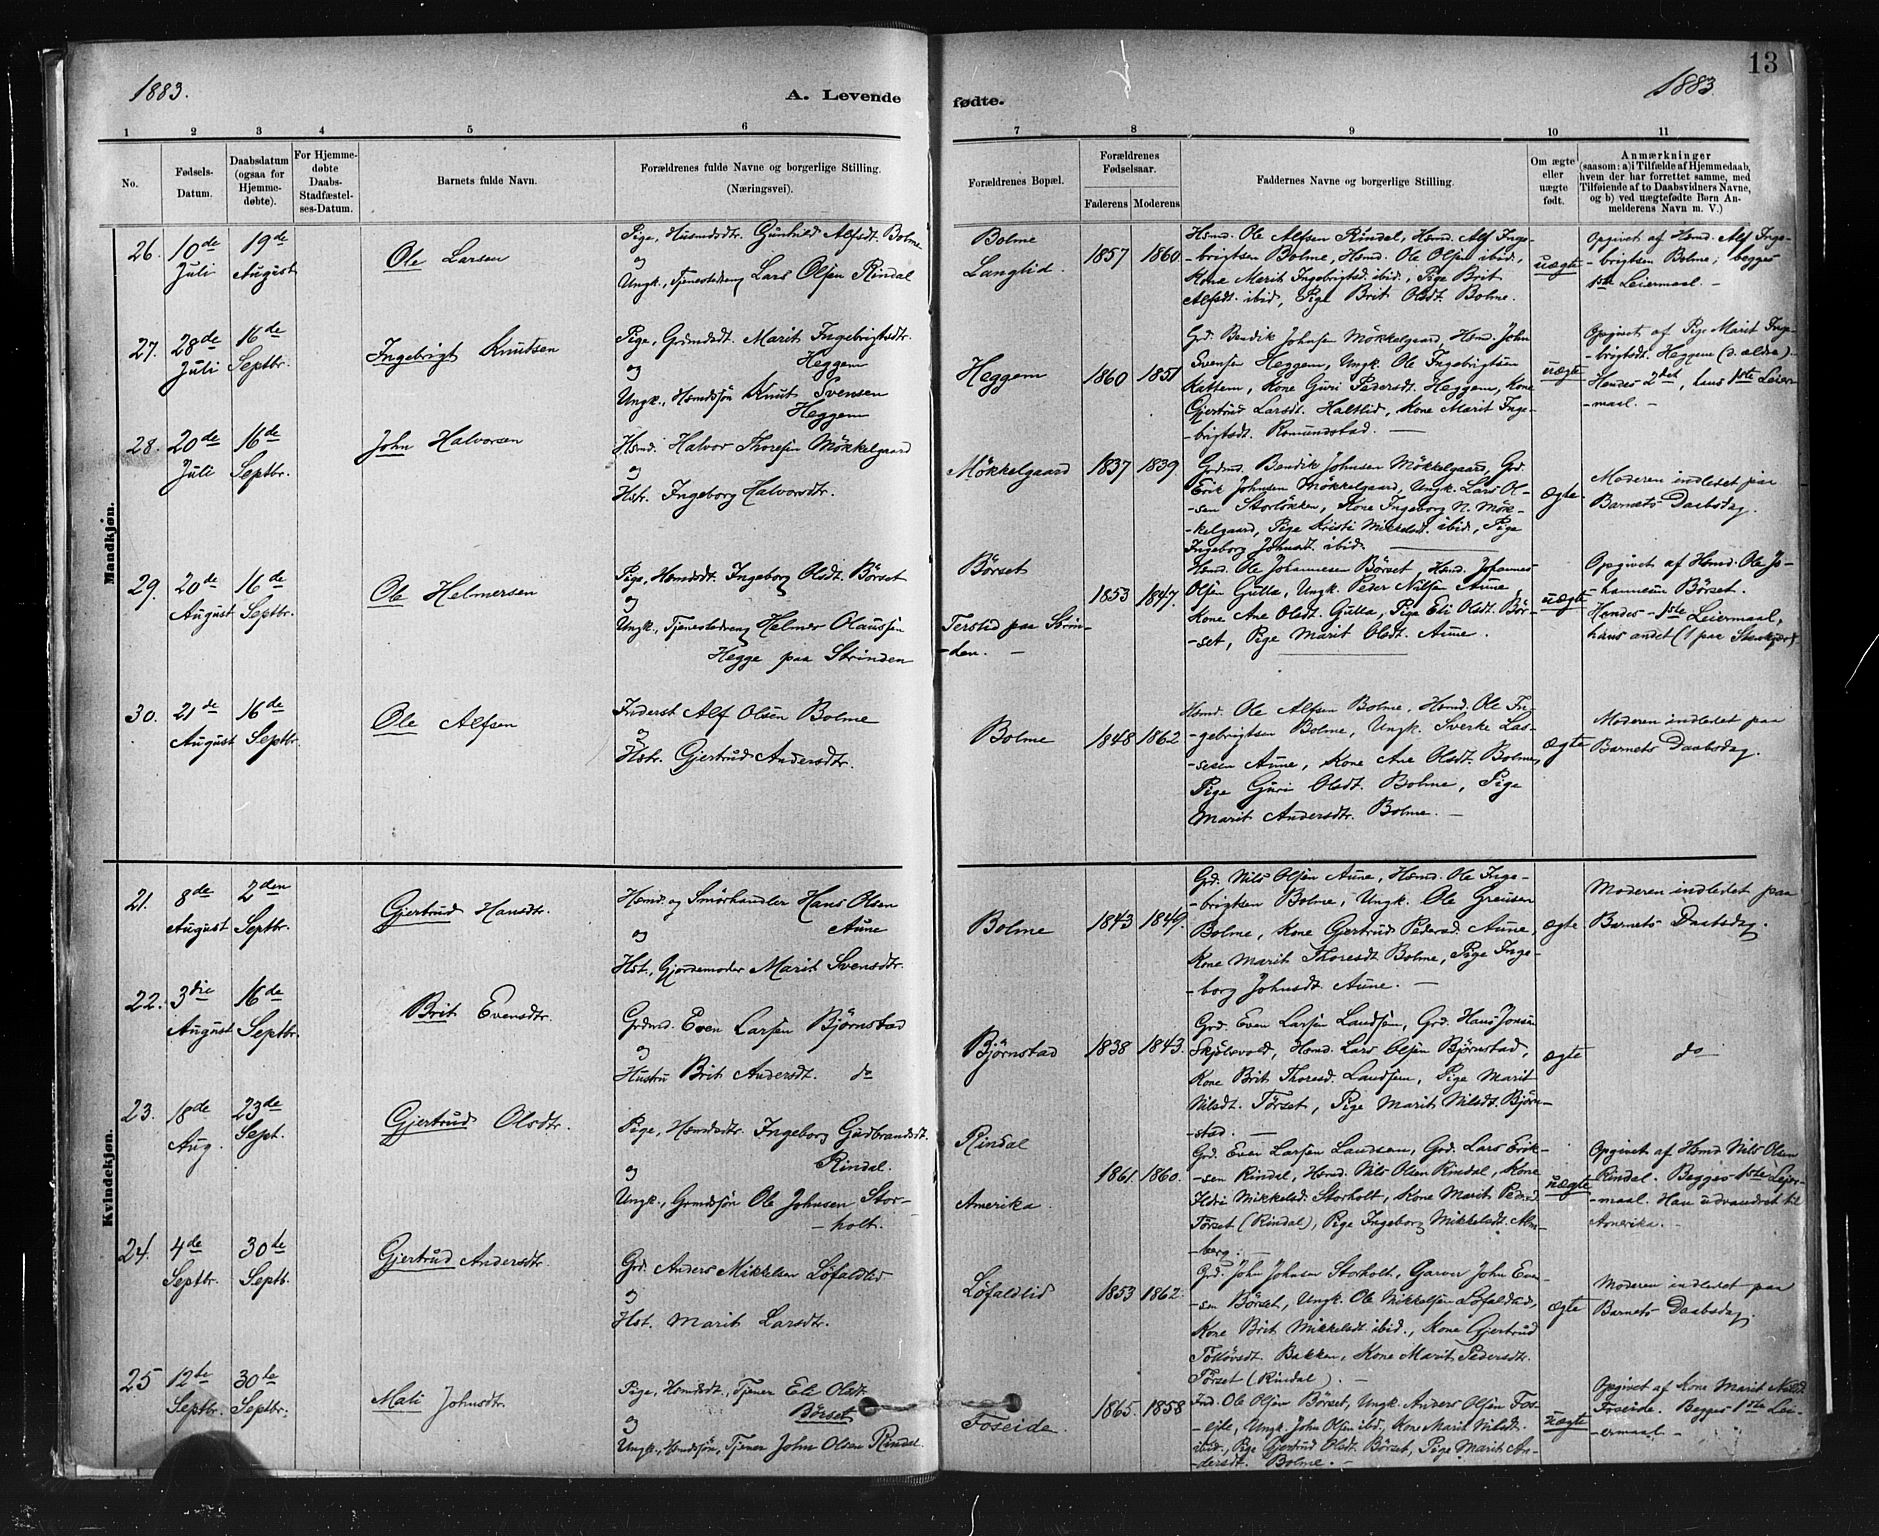 1883.
A. Levende
fødte.
1883
13
1 2 3 4 5 6 7 8 9 10 11
No.
Fødsels-
Datum.
Daabsdatum
(ogsaa for
Hjemme-
døbte).
For Hjemme-
døbte
Daabs-
Stadfæstel-
ses-Datum.
Barnets fulde Navn.
Forældrenes fulde Navne og borgerlige Stilling.
(Næringsvei).
Forældrenes Bopæl.
Forældrenes
Fødselsaar.
Faderens Moderens
Faddernes Navne og borgerlige Stilling.
Om ægte
eller
uægte
født.
Anmærkninger
(saasom: a) i Tilfælde af Hjemmedaab,
hvem der har forrettet samme, med
Tilføiende af to Daabsvidners Navne,
og b) ved uægtefødte Børn An-
melderens Navn m. V.)
Mandkjøn.
26. 10de
Juli
19de
August
Ole Larsen
Pige, Husmdsdtr. Gunhild Alfsdt. Bolme
og
Ungk., Tjenestedreng Lars Olsen Rindal
Bolme
Langlid
1857 1860
Hsmd. Ole Alfsen Rindal, Hsmd. Alf Inge-
-brigtsen Bolme, Hsmd. Ole Olsen ibid.,
Kone Marit Ingebrigtsd. ibid., Pige Brit
Alfsdt. ibid, Pige Brit Olsdt. Bolme.
uægte
Opgivet af Hsmd. Alf Inge-
-brigtsen Bolme; begges
1ste Leiermaal. -
27. 28de
Juli
16de
Septbr.
Ingebrigt Knudsen
Pige, Grdmdsdt. Marit Ingebrigtsdtr.
Heggem
og
Ungk., Hsmdssøn Knut Svensen
Heggem
Heggem
1860 1851
Grd. Bendik Johnsen Mökkelgaard, Hsmd. John
Svensen Heggem, Ungk. Ole Ingebrigtsen
Kattem, Kone Guri Pedersdt. Heggem, Kone
Gjertrud Larsdt. Haltlid, Kone Marit Inge-
-brigtsdt. Romundstad. -
uægte
Opgivet af Pige Marit Inge-
-brigtsdt. Heggem (d. ældre).
Hendes 2det, hans 1ste Leier-
-maal. -
28. 20de
Juli
16de
Septbr.
John Halvorsen
Hsmd. Halvor Thoresen Mökkelgaard
og
Hstr. Ingeborg Halvorsdtr.
Mökkelgaard
1837 1839
Grdmd. Bendik Johnsen Mökkelgaard, Grd.
Erik Johnsen Mökkelgaard, Ungk. Lars Ol-
-sen Storløkken, Kone Ingeborg N. Mök-
-kelgaard, Pige Kristi Mikkelsdt. ibid., Pige
Ingeborg Johnsdt. ibid.
ægte
Moderen indledet paa
Barnets Daabsdag.
29. 20de
August
16de
Septbr.
Ole Helmersen
Pige, Hsmdsdt. Ingeborg Olsdt. Børset
og
Ungk., Tjenestedreng Helmer Olaussen
Hegge paa Strinden
Børset
paa Strin-
-den. -
1853 1847.
Hsmd. Ole Johannesen Børset, Hsmd. Johannes
Olsen Gulla, Ungk. Peder Nilsen Aune,
Kone Ane Olsdt. Gulla, Pige Eli Olsdt. Bør-
-set, Pige Marit Olsdt. Aune.
uægte
Opgivet af Hsmd. Ole Jo-
hannesen Børset.
Hendes 1ste Leiermaal,
hans andet (1 paa Stenkjær).
30. 21de
August
16de
Septbr.
Ole Alfsen
Inderst Alf Olsen Bolme
og
Hstr. Gjertrud Andersdtr.
Bolme
1848 1862
Hsmd. Ole Alfsen Bolme, Hsmd. Ole In-
-gebrigtsen Bolme, Ungk. Sverke Las-
-sesen Aune, Kone Ane Olsdt. Bolme,
Pige Guri Olsdt. Bolme, Pige
Marit Andersdtr. Bolme. -
ægte
Moderen indledet paa
Barnets Daabsdag.
Kvindekjøn.
21. 8de
August
2den
Septbr.
Gjertrud Hansdtr.
Hsmd. og Smørhandler Hans Olsen
Aune
og
Hst., Gjordemoder Marit Svensdtr.
Bolme
1843 1849.
Grd. Nils Olsen Aune, Hsmd. Ole Inge-
-brigtsen Bolme, Ungk. Ole
Bolme, Kone Gjertrud Pedersd. Aune,
Kone Marit Thoresdt Bolme, Pige Inge-
-borg Johnsdt. Aune. -
ægte
Moderen indledet paa
Barnets Daabsdag.
22. 3die
August
16de
Septbr.
Brit Evensdtr.
Grdmd. Even Larsen Bjørnstad
og
Hustru Brit Andersdt. do
Bjørnstad
1838 1843.
Grd. Even Larsen Landsem, Grd. Hans Jonsen
Skjølsvold, Hsmd. Lars Olsen Bjørnstad,
Kone Brit Thoresd. Landsem, Pige Marit
Nilsdt. Tørset, Pige Marit Nilsdt. Bjørn-
-stad. -
ægte
do
23. 18de
Aug.
23de
Sept.
Gjertrud Olsdtr.
Pige, Hsmdsdtr. Ingeborg Gudbrandsdt.
Rindal.
og
Ungk., Grmdssøn Ole Johnsen Stor-
-holt.
Rindal
Amerika
1861. 1860.
Grd. Even Larsen Landsem, Grd. Lars Erik-
-sen Rindal, Hsmd. Nils Olsen Rindal, Kone
Mikkelsd. Storholt, Kone Marit Pedersd.
Tørset (Rindal), Pige Ingeborg Mikkelsdt. Alm-
-berg. -
uægte
Opgivet af Hsmd Nils Olsen
Rindal. Begges 1ste Leier-
-maal. Han udvandret til
Amerika. -
24. 4de
Septbr.
30te
Septb.
Gjertrud Andersdtr.
Grd. Anders Mikkelsen Löfaldlid
og
Hst. Marit Larsdtr.
Löfaldlid
1853 1862.
Grd. John Johnsen Storholt, Garver John Even-
-sen Børset, Ungk. Ole Mikkelsen Löfaldlid,
Kone Brit Mikkelsdt. ibid., Kone Gjertrud
Bakken, Kone Marit Pedersdt.
Tørset (Rindal). -
ægte
Moderen indledet paa
Barnets Daabsdag.
25 12te
Septbr.
30te
Septbr.
Mali Johnsdtr.
Pige, Hsmdsdt., Tjener Eli Olsdt.
Børset
og
Ungk., Hsmdssøn, Tjener John Olsen Rindal.
Foseide.
1865. 1858
Ind. Ole Olsen Børset, Ungk. Anders Olsen Fos-
-eide, Ungk. John Olsen ibid., Kone Marit Nilsdt.
ibid., Pige Gjertrud Olsdt. Børset, Pige Marit An-
-dersdt. Bolme. -
uægte
Opgivet af Kone Marit Nilsdt.
Foseide. Begges 1ste Lei-
-ermaal. -